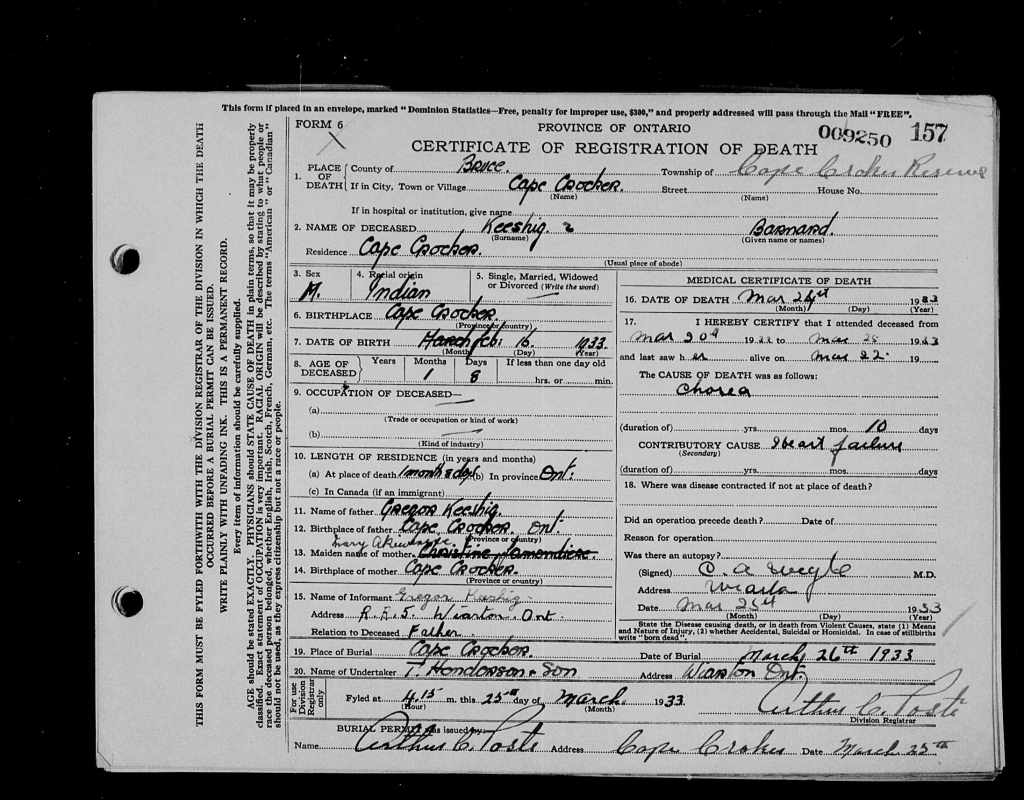 This form if placed in an envelope, marked "Dominion Statistics—Free, penalty for improper use, $300," and properly addressed will pass through the Mail "FREE".
THIS FORM MUST BE FYLED FORTHWITH WITH THE DIVISION REGISTRAR OF THE DIVISION IN WHICH THE DEATH
OCCURRED BEFORE A BURIAL PERMIT CAN BE ISSUED.
WRITE PLAINLY WITH UNFADING INK. THIS IS A PERMANENT RECORD.
Every item of information should be carefully supplied.
AGE should be stated EXACTLY. PHYSICIANS should STATE CAUSE OF DEATH in plain terms, so that it may be properly
classified. Exact statement of OCCUPATION is very important. RACIAL ORIGIN will be described by stating to what people or
race the deceased person belonged, whether English, Irish, Scotch, French, German, etc. The terms "American" or "Canadian"
should not be used, as they express citizenship but not a race or people.
FORM 6
PROVINCE OF ONTARIO
009250 157
CERTIFICATE OF REGISTRATION OF DEATH
1. PLACE OF DEATH
County of Bruce. Township of Cape Croker Reserve
If in City, Town or Village Cape Crocker. Street House No.
(Name) (Name)
If in hospital or institution, give name
2. NAME OF DECEASED Keeshig. Barnard.
(Surname) (Given name or names)
Residence Cape Crocker.
(Usual place of abode)
3. Sex M.
4. Racial origin Indian
5. Single, Married, Widowed or Divorced (Write the word)
6. BIRTHPLACE Cape Crocker.
(Province or country)
7. DATE OF BIRTH March Feb. 16. 1933.
(Month) (Day) (Year)
8. AGE OF DECEASED
Years Months Days If less than one day old
1 8 hrs. or min.
9. OCCUPATION OF DECEASED—
(a)
(Trade or occupation or kind of work)
(b)
(Kind of industry)
10. LENGTH OF RESIDENCE (in years and months)
(a) At place of death 1 month 8 days (b) In province Ont.
(c) In Canada (if an immigrant)
11. Name of father Gregor Keeshig.
12. Birthplace of father Cape Crocker. Ont.
(Province or country)
13. Maiden name of mother Christine Jamondiese.
14. Birthplace of mother Cape Crocker.
(Province or country)
15. Name of Informant Gregor Keeshig
Address R.R.5 Wiarton. Ont.
Relation to Deceased Father.
MEDICAL CERTIFICATE OF DEATH
16. DATE OF DEATH Mar 24th 1933
(Month) (Day) (Year)
17. I HEREBY CERTIFY that I attended deceased from
Mar 19 to Mar 19
and last saw h er alive on Mar 22. 19
The CAUSE OF DEATH was as follows:
Chorea
(duration of) yrs. mos. 10 days
CONTRIBUTORY CAUSE Heart failure
(Secondary)
(duration of) yrs. mos. days
18. Where was disease contracted if not at place of death?
Did an operation precede death? Date of
Reason for operation
Was there an autopsy?
(Signed) C. A. M.D.
Address Wiarton
Date Mar 25th 1933
(Month) (Day) (Year)
State the Disease causing death, or in death from Violent Causes, state (1) Means
and Nature of Injury, (2) whether Accidental, Suicidal or Homicidal. In case of stillbirths
write "born dead".
19. Place of Burial Cape Crocker. Date of Burial March 26th 1933
20. Name of Undertaker T. Henderson & Son Address Wiarton Ont.
For use Division Registrar only
Fyled at 4.15 m. this 25th day of March. 1933
(Hour) (Month)
Arthur C. Poste
Division Registrar
BURIAL PERMIT was issued by
Name Arthur C. Poste Address Cape Croker Date March 25th